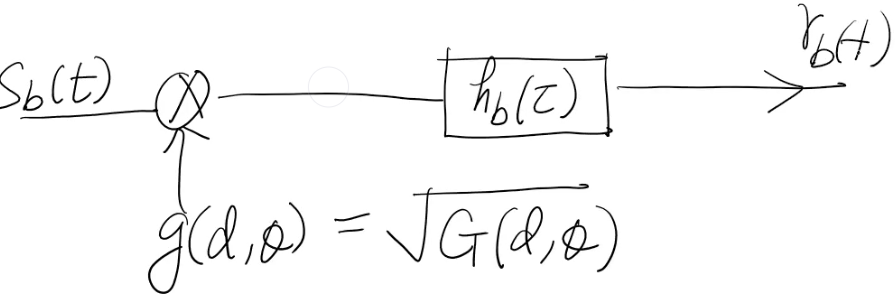 S_b(t)
h_b(τ)
r_b(t)
g(d,φ) = √G(d,φ)